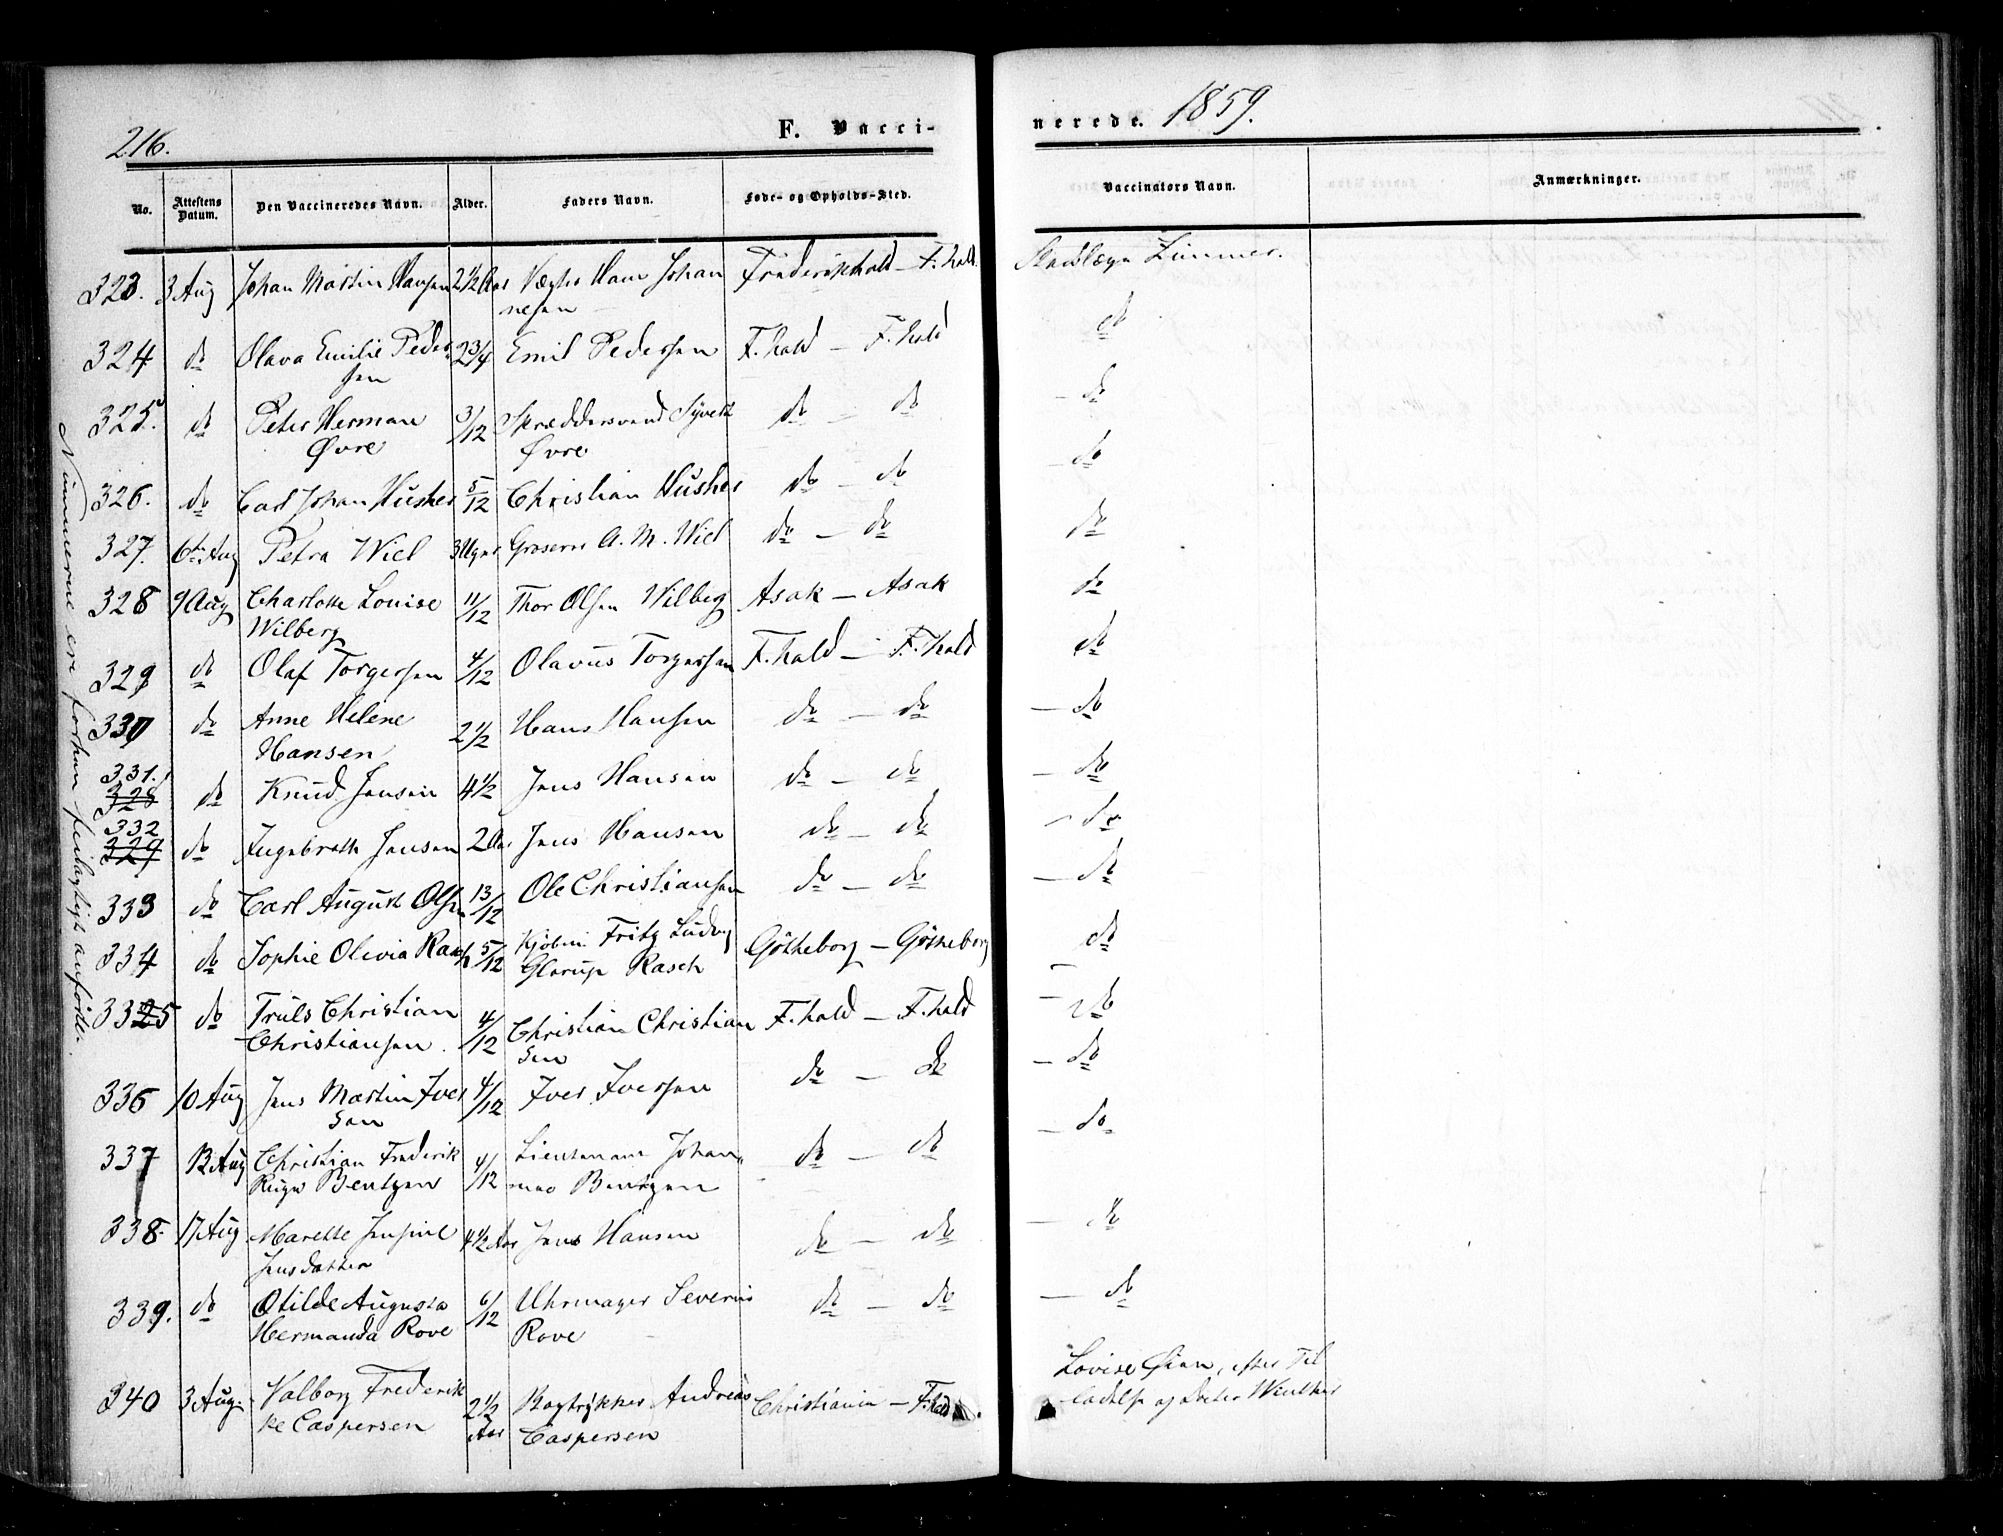 216.
F. Vacci-
nerede. 1859.
No. Attestens Datum. Den Vaccineredes Navn. Alder. Faders Navn. Føde- og Opholds-Sted. Vaccinators Navn. Anmærkninger.
323. 3 Aug Johan Martin Hansen 2½ Aar Vægter Hans Johan Frederikshald - F.hald Zimmer.
nesen
324 do Olava Emilie Peder 2 3/4 Emil Pedersen F.hald - F.hald do
sen
325. do Peter Herman 3/12 Skræddersvend Syvert do - do - do
Øvre Øvre
326. do Carl Johan Husher 5/12 Christian Husher do - do - do
327. 6te Aug Petra Wiel 3 Uger Grosserer A. M. Wiel do - do do
328 9 Aug Charlotte Louise 11/12 Thor Olsen Wilberg Asak - Asak do
Wilberg
329 do Olaf Torgersen 4/12 Olavus Torgersen F.hald - F.hald do
330 do Anne Helene 2½ Hans Hansen do - do - do
Hansen
331.
328 do Knud Jensen 4½ Jens Hansen do - do - do
332
329 do Ingebreth Jensen 2 Aar Jens Hansen do - do - do
333 do Carl August Olsen 13/12 Ole Christiansen do - do - do
334 do Sophie Olivia Rasch 5/12 Kjøbm. Fritz Ludvig Götheborg - Götheborg do
Glarup Rasch
3325 do Truls Christian 4/12 Christian Christian F.hald - F.hald - do
Christiansen. sen
336 10 Aug Jens Martin Iver 4/12 Iver Iversen do - do - do
sen
337 12 Aug Christian Frederik 4/12 Lieutenant Johan do - do - do
Bentzen Bentzen
338. 17 Aug Marethe 4½ Aar Jens Hansen do - do - do
Jensdatter
339. do Otilde Augusta 6/12 Uhrmager Severin do - do - do
Hermanda Rove Rove
340 3 Aug. Valborg Frederik 2½ Bogtrykker Andreas Christiania - F.hald. Lovise efter Til
ke Caspersen Aar Caspersen ladelse af Winther
Numerne ere forhen feilagtigt anførte.